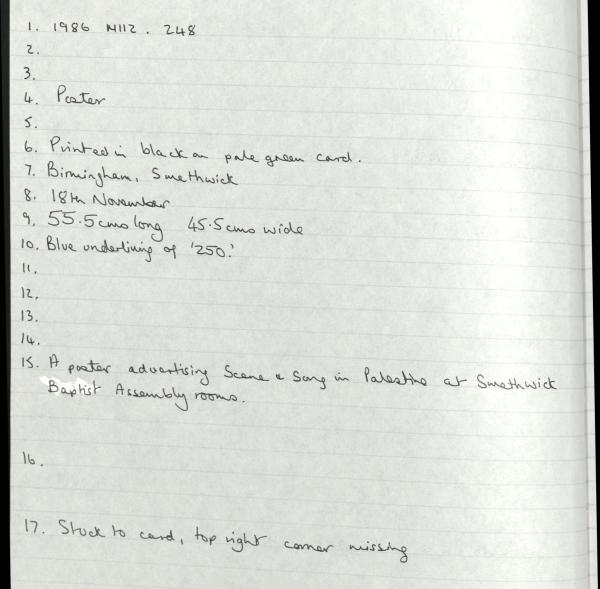 1. 1986 M112. 248
2.
3.
4. Poster
5.
6. Printed in black on pale green card.
7. Birmingham, Smethwick
8. 18th November
9. 55.5cms long 45.5cms wide
10. Blue underlining of '250.'
11.
12.
13.
14.
15. A poster advertising Scene & Song in Palestine at Smethwick
Baptist Assembly rooms.
16.
17. Stuck to card, top right corner missing